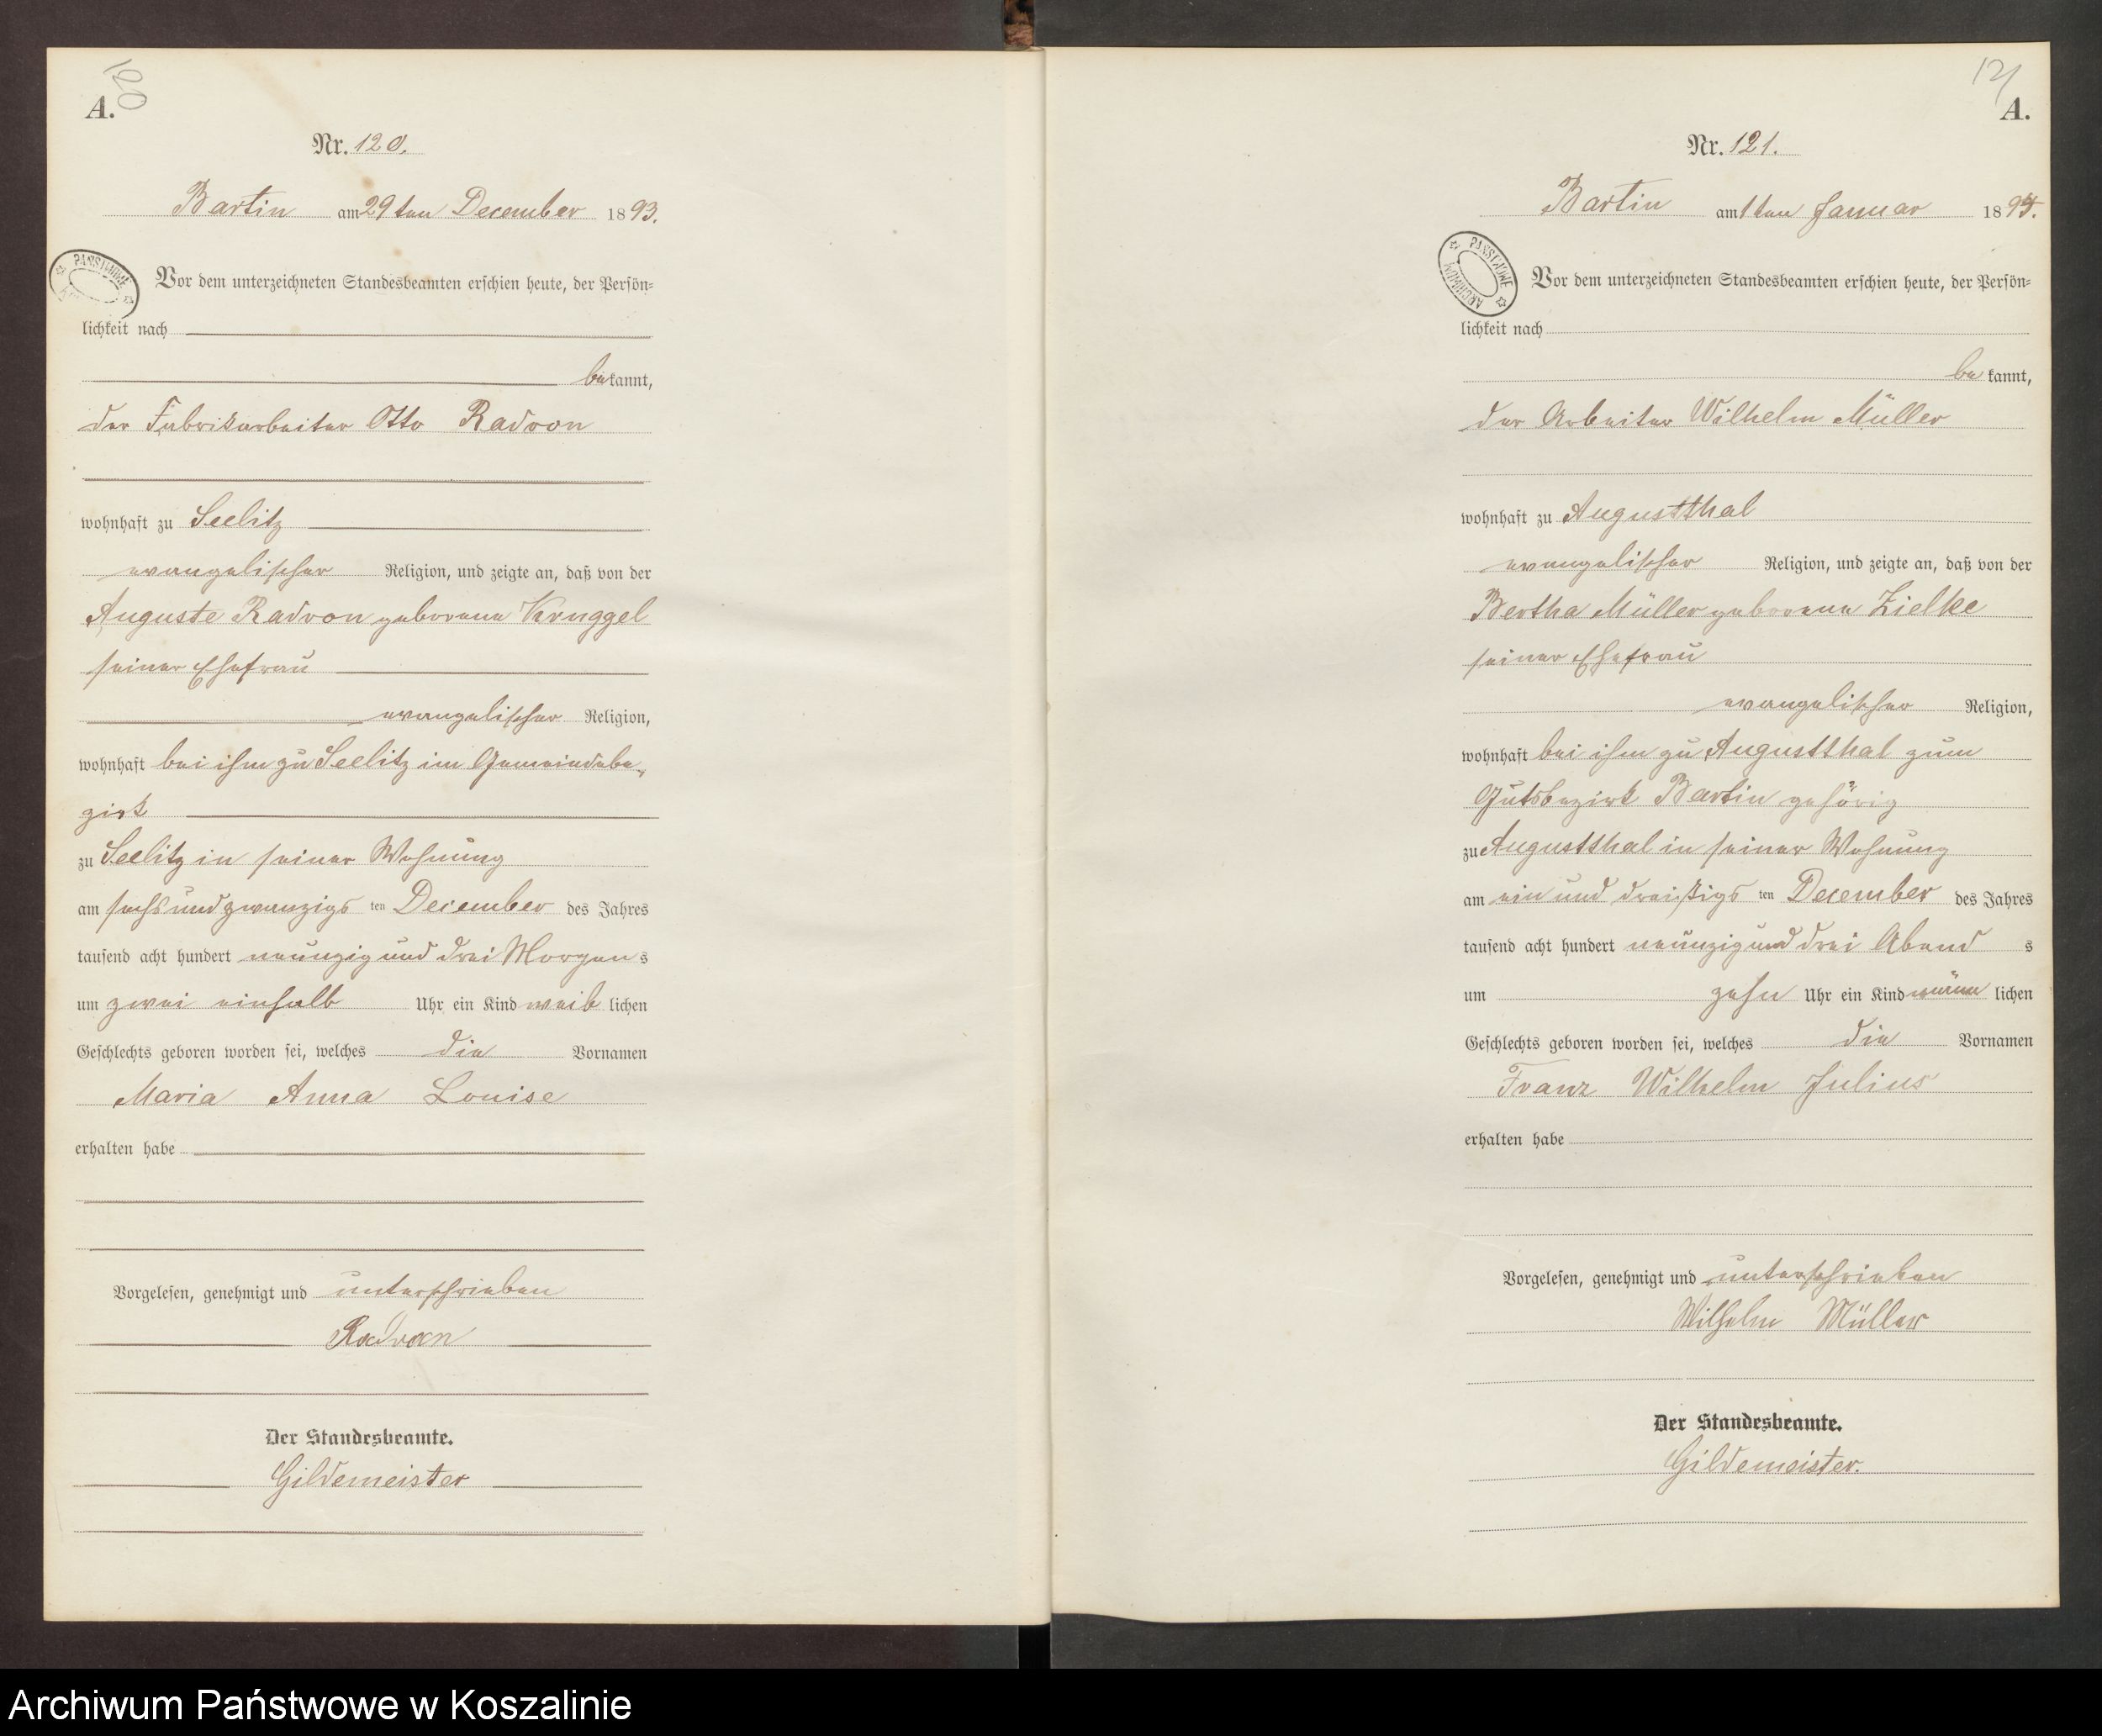 120
A.
Nr. 120.
Bartin am 29ten December 1893.
PAŃSTWOWE
Vor dem unterzeichneten Standesbeamten erschien heute, der Persön-
lichkeit nach
bekannt,
der Fabrikarbeiter Otto Radvon
wohnhaft zu Seelitz
evangelischer Religion, und zeigte an, daß von der
Auguste Radvon geborene Kruggel
seiner Ehefrau
evangelischer Religion,
wohnhaft bei ihm zu Seelitz im Gemeindebe-
zirk
zu Seelitz in seiner Wohnung
am sechs und zwanzigs ten December des Jahres
tausend acht hundert neunzig und drei Morgens
um zwei einhalb Uhr ein Kind weiblichen
Geschlechts geboren worden sei, welches die Vornamen
Maria Anna Louise
erhalten habe
Vorgelesen, genehmigt und unterschrieben
Radvan
Der Standesbeamte.
Gildemeister
121
A.
Nr. 121.
Bartin am 1ten Januar 1894.
PAŃSTWOWE ARCHIWUM
Vor dem unterzeichneten Standesbeamten erschien heute, der Persön-
lichkeit nach
bekannt,
der Arbeiter Wilhelm Müller
wohnhaft zu Augustthal
evangelischer Religion, und zeigte an, daß von der
Bertha Müller geborene Zielke
seiner Ehefrau
evangelischer Religion,
wohnhaft bei ihm zu Augustthal zum
Gutsbezirk Bartin gehörig
zu Augustthal in seiner Wohnung
am ein und dreißigs ten December des Jahres
tausend acht hundert neunzig und drei Abends
um zehn Uhr ein Kind männlichen
Geschlechts geboren worden sei, welches die Vornamen
Franz Wilhelm Julius
erhalten habe
Vorgelesen, genehmigt und unterschrieben
Wilhelm Müller
Der Standesbeamte.
Gildemeister.
Archiwum Państwowe w Koszalinie